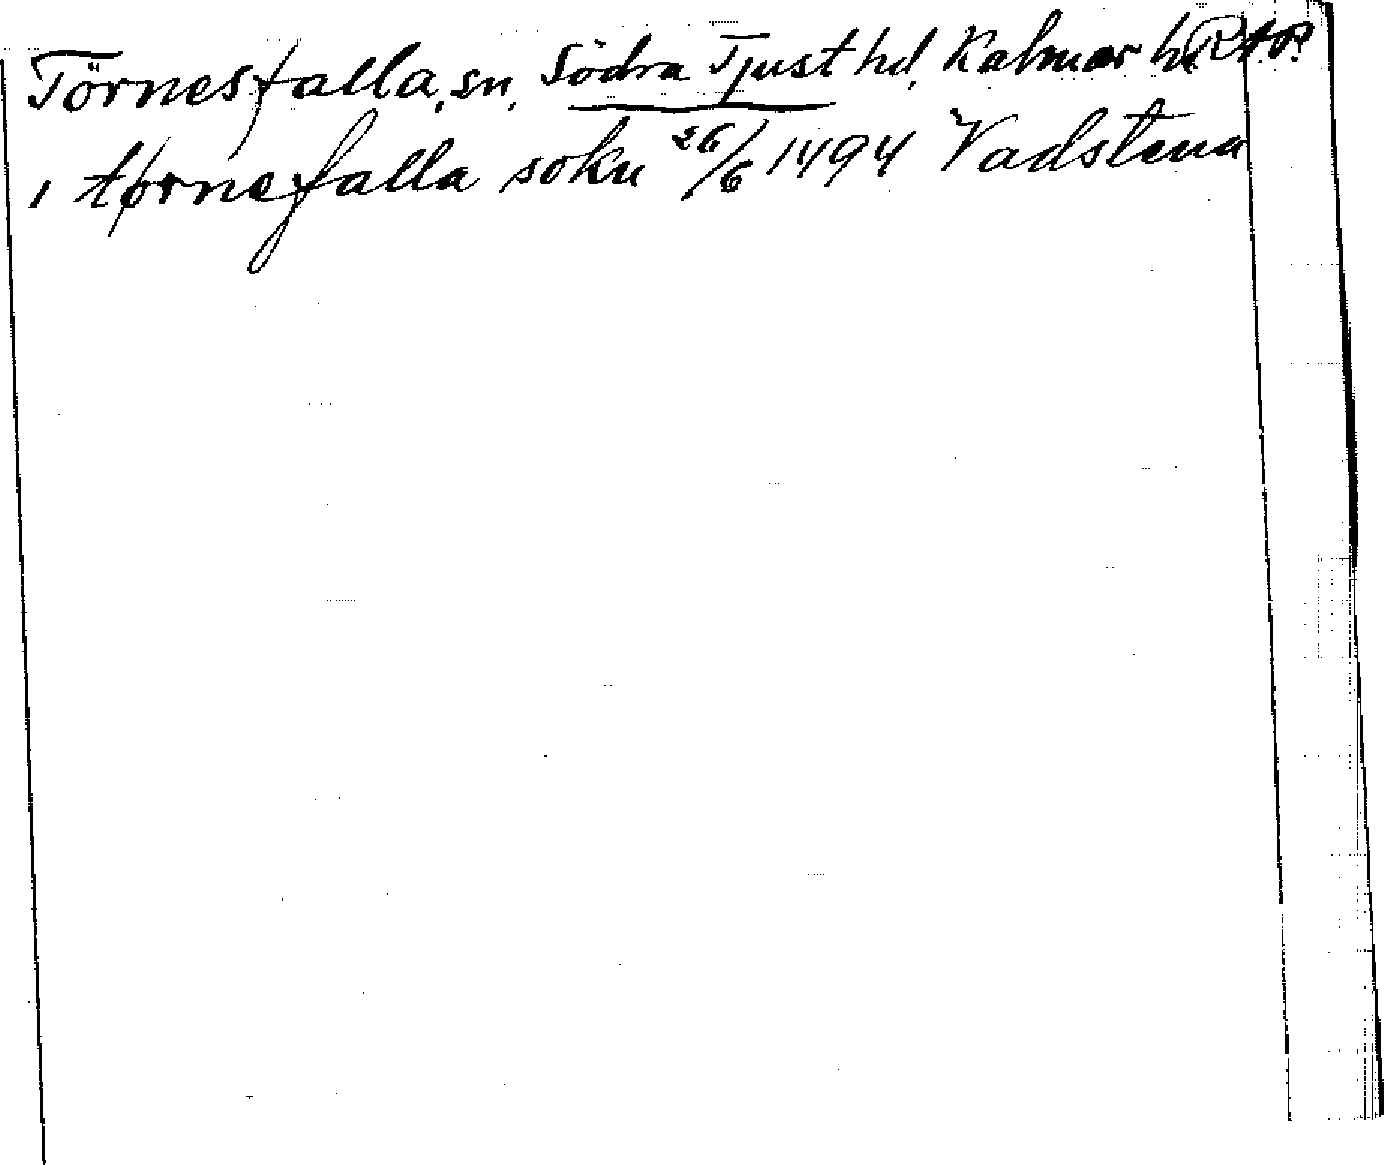 Törnesfalla, sn, Södra Tjust hd, Kalmar l. RAP.
i tørnesfalla sokn 26/6 1494 Vadstena